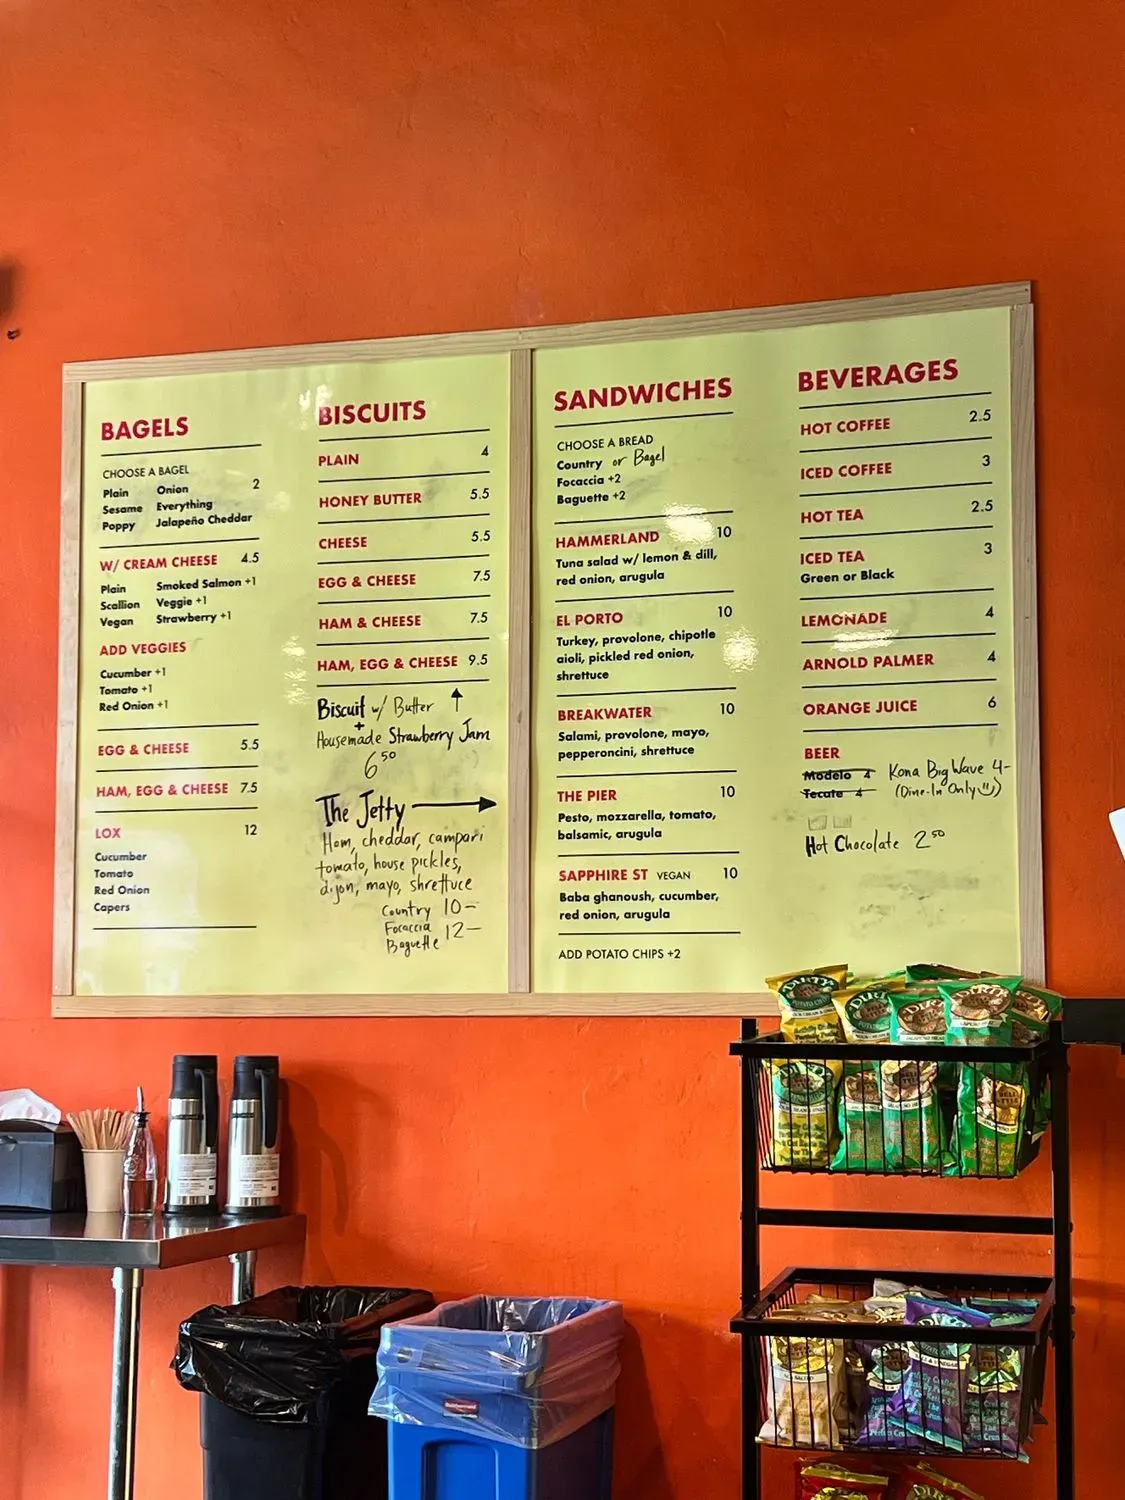 BAGELS
CHOOSE A BAGEL
Plain Onion 2
Sesame Everything
Poppy Jalapeño Cheddar
W/ CREAM CHEESE 4.5
Plain Smoked Salmon +1
Scallion Veggie +1
Vegan Strawberry +1
ADD VEGGIES
Cucumber +1
Tomato +1
Red Onion +1
EGG & CHEESE 5.5
HAM, EGG & CHEESE 7.5
LOX 12
Cucumber
Tomato
Red Onion
Capers
BISCUITS
PLAIN 4
HONEY BUTTER 5.5
CHEESE 5.5
EGG & CHEESE 7.5
HAM & CHEESE 7.5
HAM, EGG & CHEESE 9.5
Biscuit w/ Butter ↑
+
Housemade Strawberry Jam
6⁵⁰
The Jetty →
Ham, cheddar, campari
tomato, house pickles,
dijon, mayo, shrettuce
Country 10-
Focaccia
Baguette 12-
SANDWICHES
CHOOSE A BREAD
Country or Bagel
Focaccia +2
Baguette +2
HAMMERLAND 10
Tuna salad w/ lemon & dill,
red onion, arugula
EL PORTO 10
Turkey, provolone, chipotle
aioli, pickled red onion,
shrettuce
BREAKWATER 10
Salami, provolone, mayo,
pepperoncini, shrettuce
THE PIER 10
Pesto, mozzarella, tomato,
balsamic, arugula
SAPPHIRE ST VEGAN 10
Baba ghanoush, cucumber,
red onion, arugula
ADD POTATO CHIPS +2
BEVERAGES
HOT COFFEE 2.5
ICED COFFEE 3
HOT TEA 2.5
ICED TEA 3
Green or Black
LEMONADE 4
ARNOLD PALMER 4
ORANGE JUICE 6
BEER
Modelo 4 Kona Big Wave 4-
Tecate 4 (Dine-In Only)
Hot Chocolate 2⁵⁰
DIRTY
DIRTY
DIRTY
DIRTY